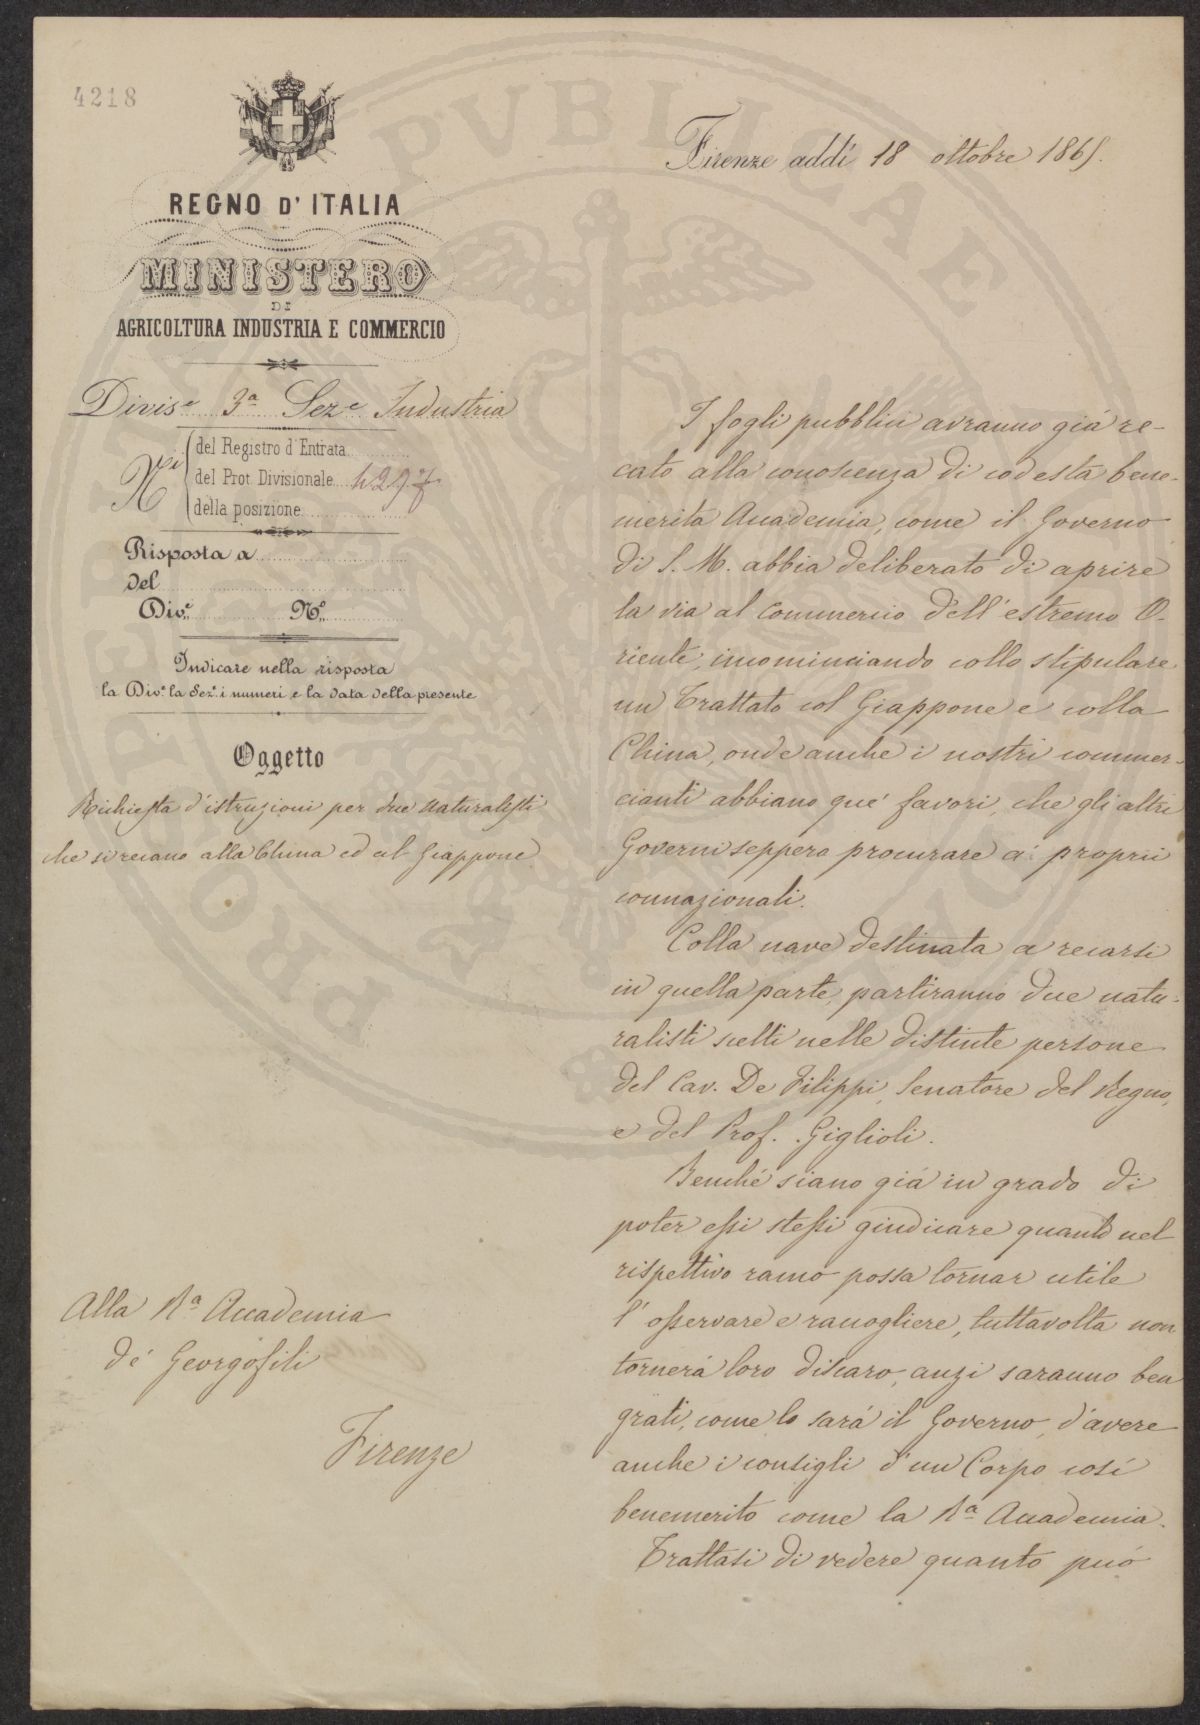 4218
REGNO D'ITALIA
MINISTERO
DI
AGRICOLTURA INDUSTRIA E COMMERCIO
Divise 3a Seze Industria
Ni
del Registro d'Entrata
del Prot. Divisionale 4297
della posizione
Risposta a
del
Dive. No.
Indicare nella risposta
la Dive. la Seze. i numeri e la data della presente
Oggetto
Richiesta d'istruzioni per due naturalisti
che si recano alla China ed al Giappone
Alla Ra Accademia
de' Georgofili
Firenze
Firenze addì 18 ottobre 1865.
I fogli pubblici avranno già re-
cato alla conoscenza di codesta bene-
merita Accademia, come il Governo
di S. M. abbia deliberato di aprire
la via al commercio dell'estremo O-
riente, incominciando collo stipulare
un Trattato col Giappone e colla
China, onde anche i nostri commer-
cianti abbiano que' favori, che gli altri
Governi seppero procurare a' proprii
connazionali.
Colla nave destinata a recarsi
in quella parte, partiranno due natu-
ralisti scelti nelle distinte persone
del Cav. De Filippi, Senatore del Regno,
e del Prof. Giglioli.
Benché siano già in grado di
poter essi stessi giudicare quanto nel
rispettivo ramo possa tornar utile
l'osservare e raccogliere, tuttavolta non
tornerà loro discaro, anzi saranno ben
grati, come lo sarà il Governo, d'avere
anche i consigli d'un Corpo così
benemerito come la Ra Accademia.
Trattasi di vedere quanto può
PUBLICAE
PROSPERITATI